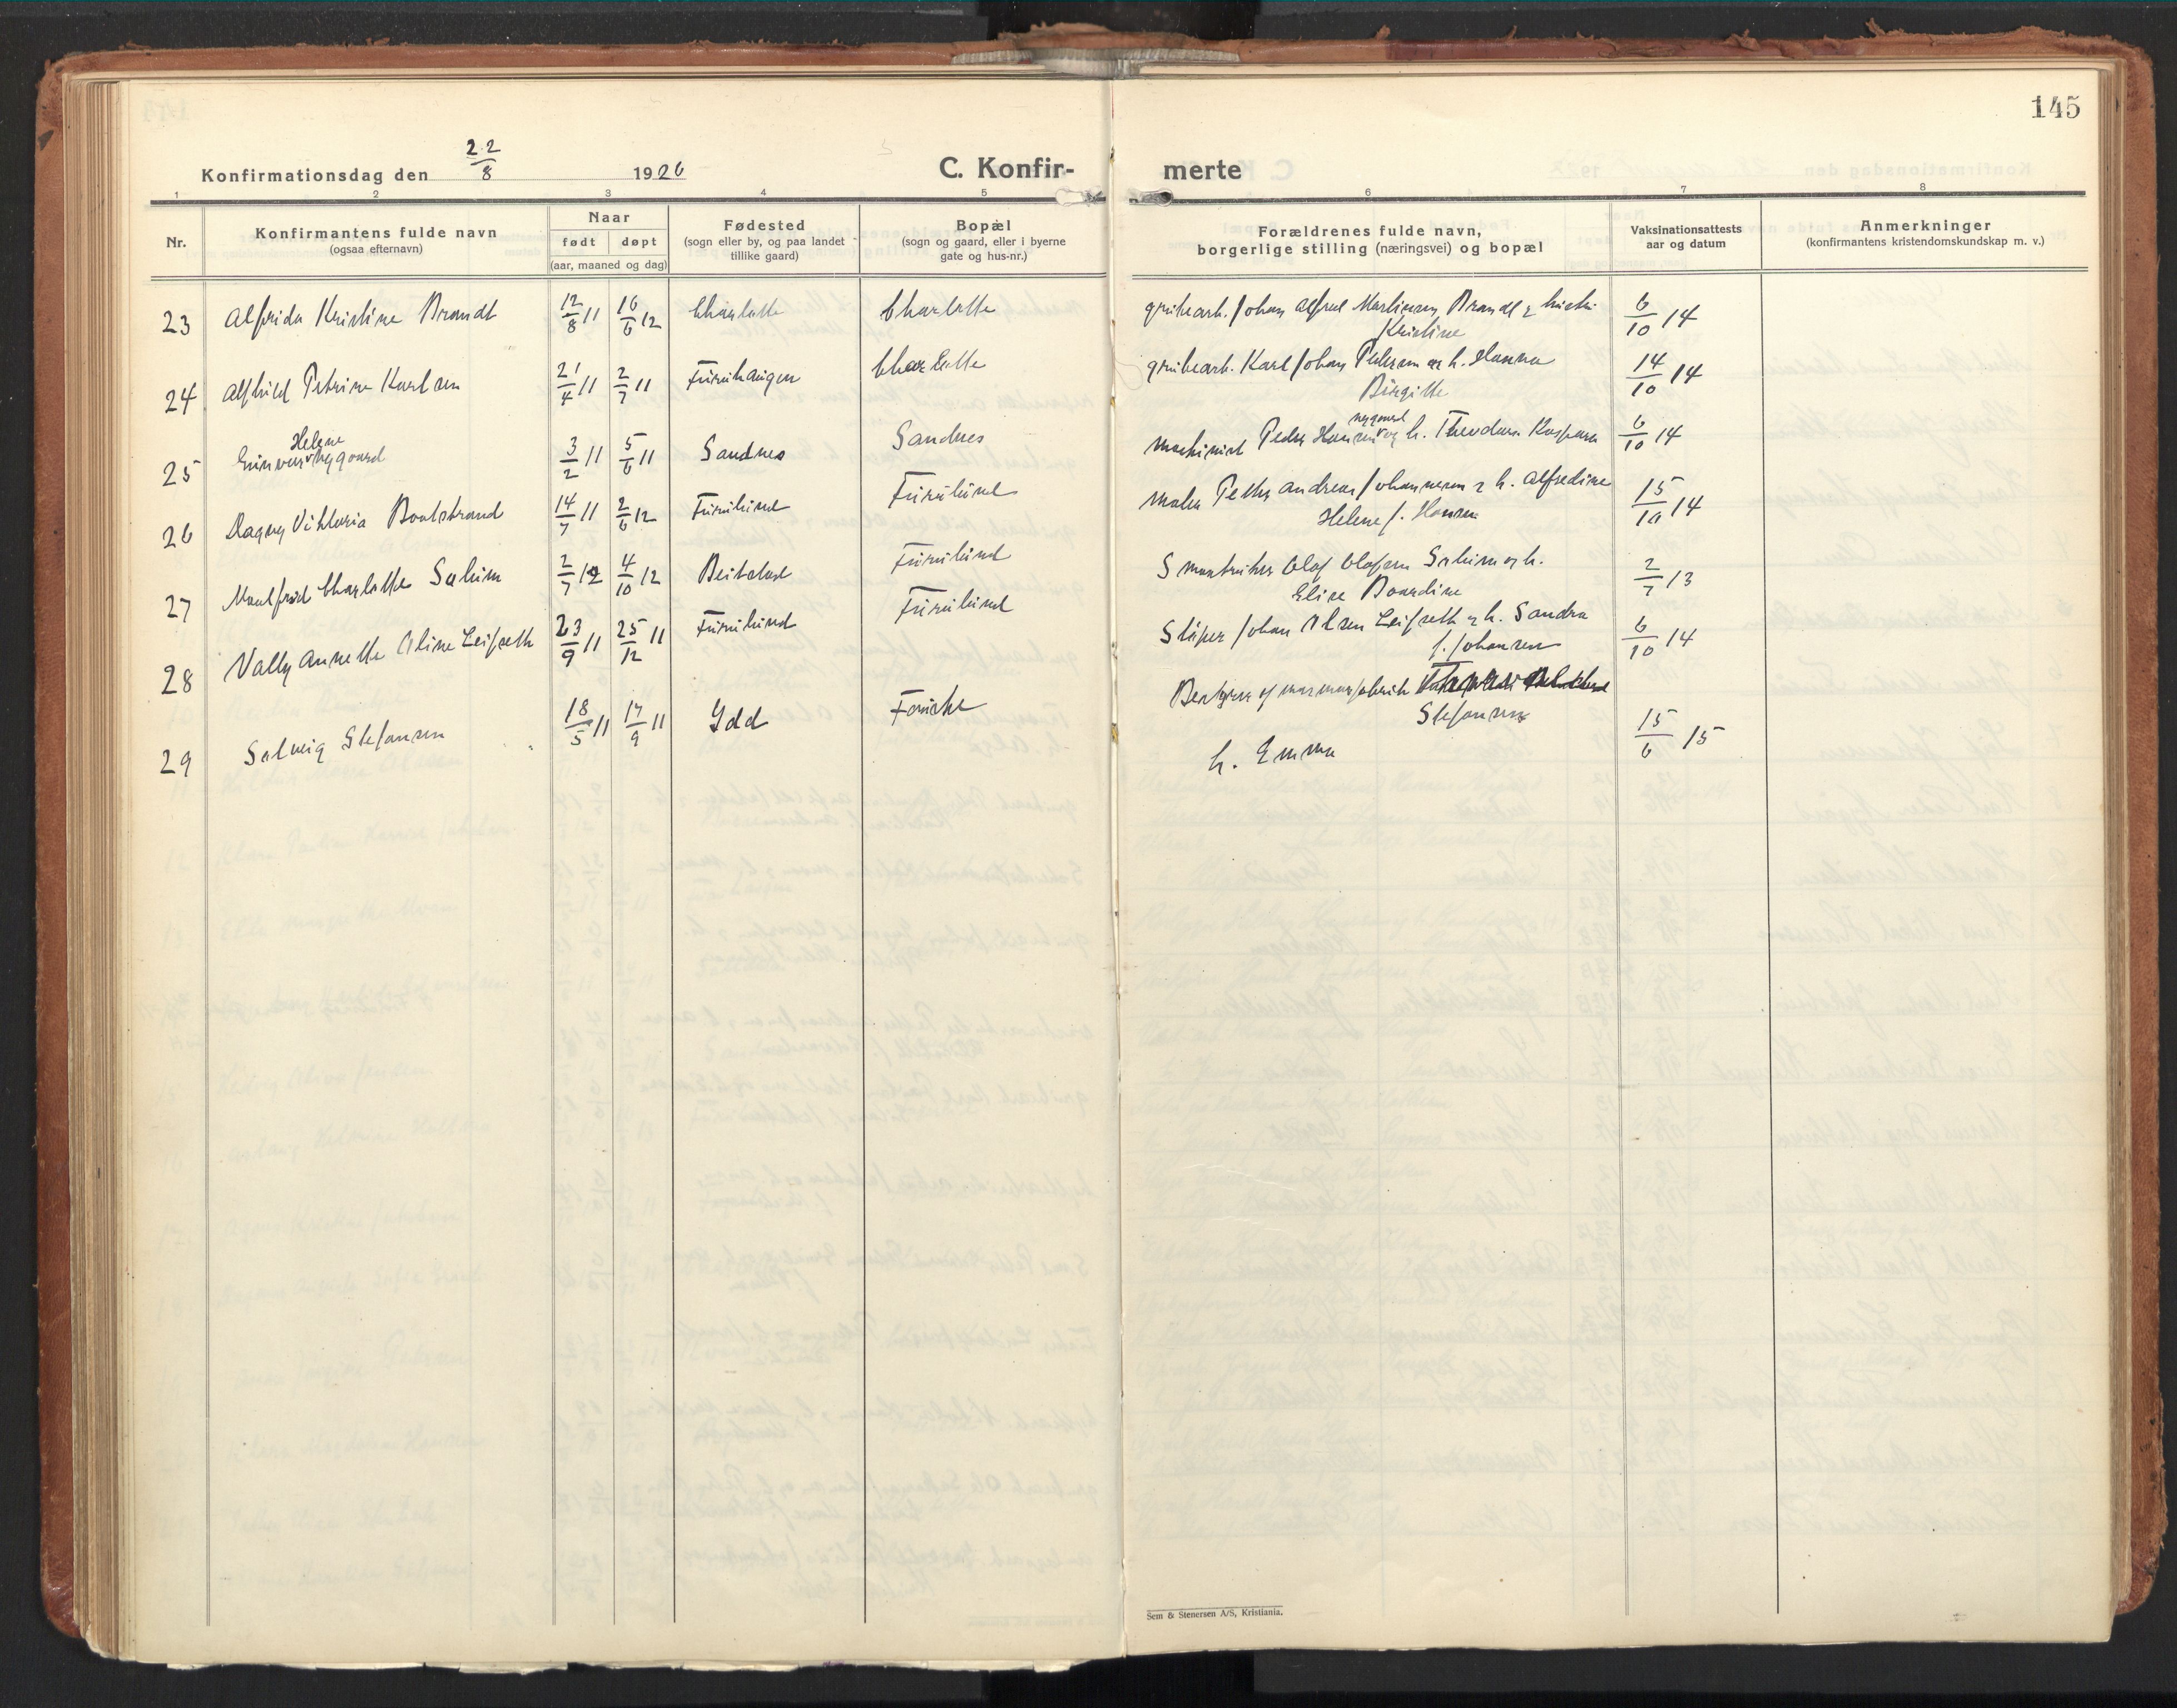 145
Konfirmationsdag den 22/8 1926 C. Konfir- merte
1 2 3 4 5 6 7 8
Nr.
Konfirmantens fulde navn
(ogsaa efternavn)
Naar
født døpt
(aar, maaned og dag)
Fødested
(sogn eller by, og paa landet
tillike gaard)
Bopæl
(sogn og gaard, eller i byerne
gate og hus-nr.)
Forældrenes fulde navn,
borgerlige stilling (næringsvei) og bopæl
Vaksinationsattests
aar og datum
Anmerkninger
(konfirmantens kristendomskundskap m. v.)
23 Alfrida Kristine Brandt 12/8 11 16/6 12 Charlotte Charlotte grubearb. Johan Alfred Martinsen Brandt & hustru 6/10 14
Kristine
24 Alfhild Petrine Karlsen 21/4 11 2/7 11 Furuhaugen Charlotte grubearb. Karl Johan Pedersen og h. Hanna 14/10 14
Birgitte
Helene
25 Nygaard 3/2 11 5/6 11 Sandnes Sandnes maskinist Peder Hansen og h. Theodora Kaspara 6/10 14
nygaard
26 Dagny Viktoria Boatstrand 14/7 11 2/6 12 Furulund Furulund maler Petter Andreas Johannesen & h. Alfredine 15/10 14
Helene f. Hansen
27 Charlotte Solheim 2/7 12 4/10 12 Beitstad Furulund Smeltehytte Olaf Olafsen Solheim og h. 2/7 13
Elise Bourdine
28 Vally Annette Oline Leifseth 23/9 11 25/12 11 Furulund Furulund Sliper Johan Olsen Leifseth & h. Sandra 6/10 14
f. Johansen
29 Solveig Stefansen 18/5 11 17/9 11 Idd Fauske Bestyrer af marmorfabrik
Stefansen
h. Emma 15/6 15
Sem & Stenersen A/S, Kristiania.